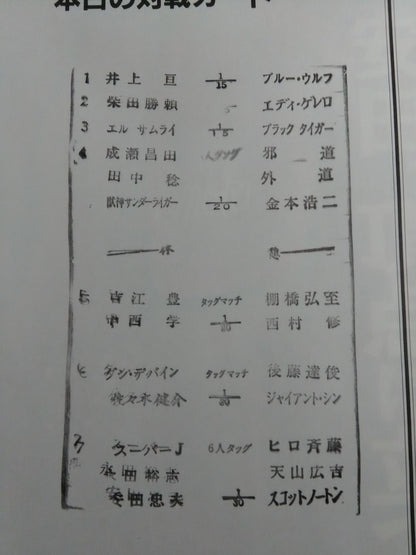 本日の対戦カード
1 井上亘 1/15 ブルー・ウルフ
2 柴田勝頼 エディ・ゲレロ
3 エル サムライ 1/15 ブラック タイガー
4 成瀬昌由 邪道
田中稔 外道
獣神サンダーライガー 1/20 金本浩二
休 憩
5 吉江豊 タッグマッチ 棚橋弘至
中西学 西村修
ダン・デバイン タッグマッチ 後藤達俊
佐々木健介 1/30 ジャイアント・シン
7 スーパーJ 6人タッグ ヒロ斉藤
永田裕志 天山広吉
安田忠夫 1/30 スコットノートン